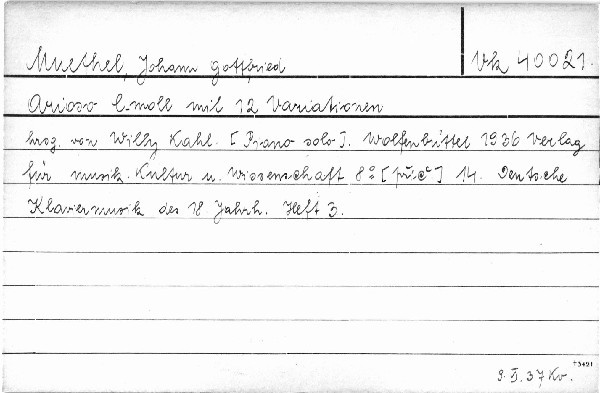 Muethel, Johann Gottfried Vk 40021.
Arioso c-moll mit 12 Variationen
hrsg. von Willy Kahl. [Piano solo]. Wolfenbüttel 1936 Verlag
für musik. Kultur u. Wissenschaft 8° [ ] 14. Deutsche
Klaviermusik des 18 Jahrh. Heft 3.
+3421
9. II. 37 Kv.